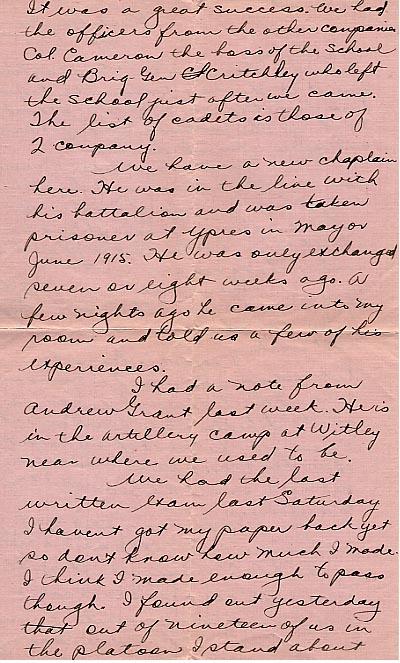 It was a great success. We had
the officers from the other companies
Col. Cameron the boss of the School
and Brig Gen Critchley who left
the school just after we came.
The list of cadets is those of
2 company.
We have a new chaplain
here. He was in the line with
his battalion and was taken
prisoner at Ypres in May or
June 1915. He was only exchanged
seven or eight weeks ago. A
few nights ago he came into my
room and told us a few of his
experiences.
I had a note from
Andrew Grant last week. He is
in the artillery camp at Witley
near where we used to be.
We had the last
written exam last Saturday
I havent got my paper back yet
so dont know how much I made.
I think I made enough to pass
though. I found out yesterday
that out of nineteen of us in
the platoon I stand about